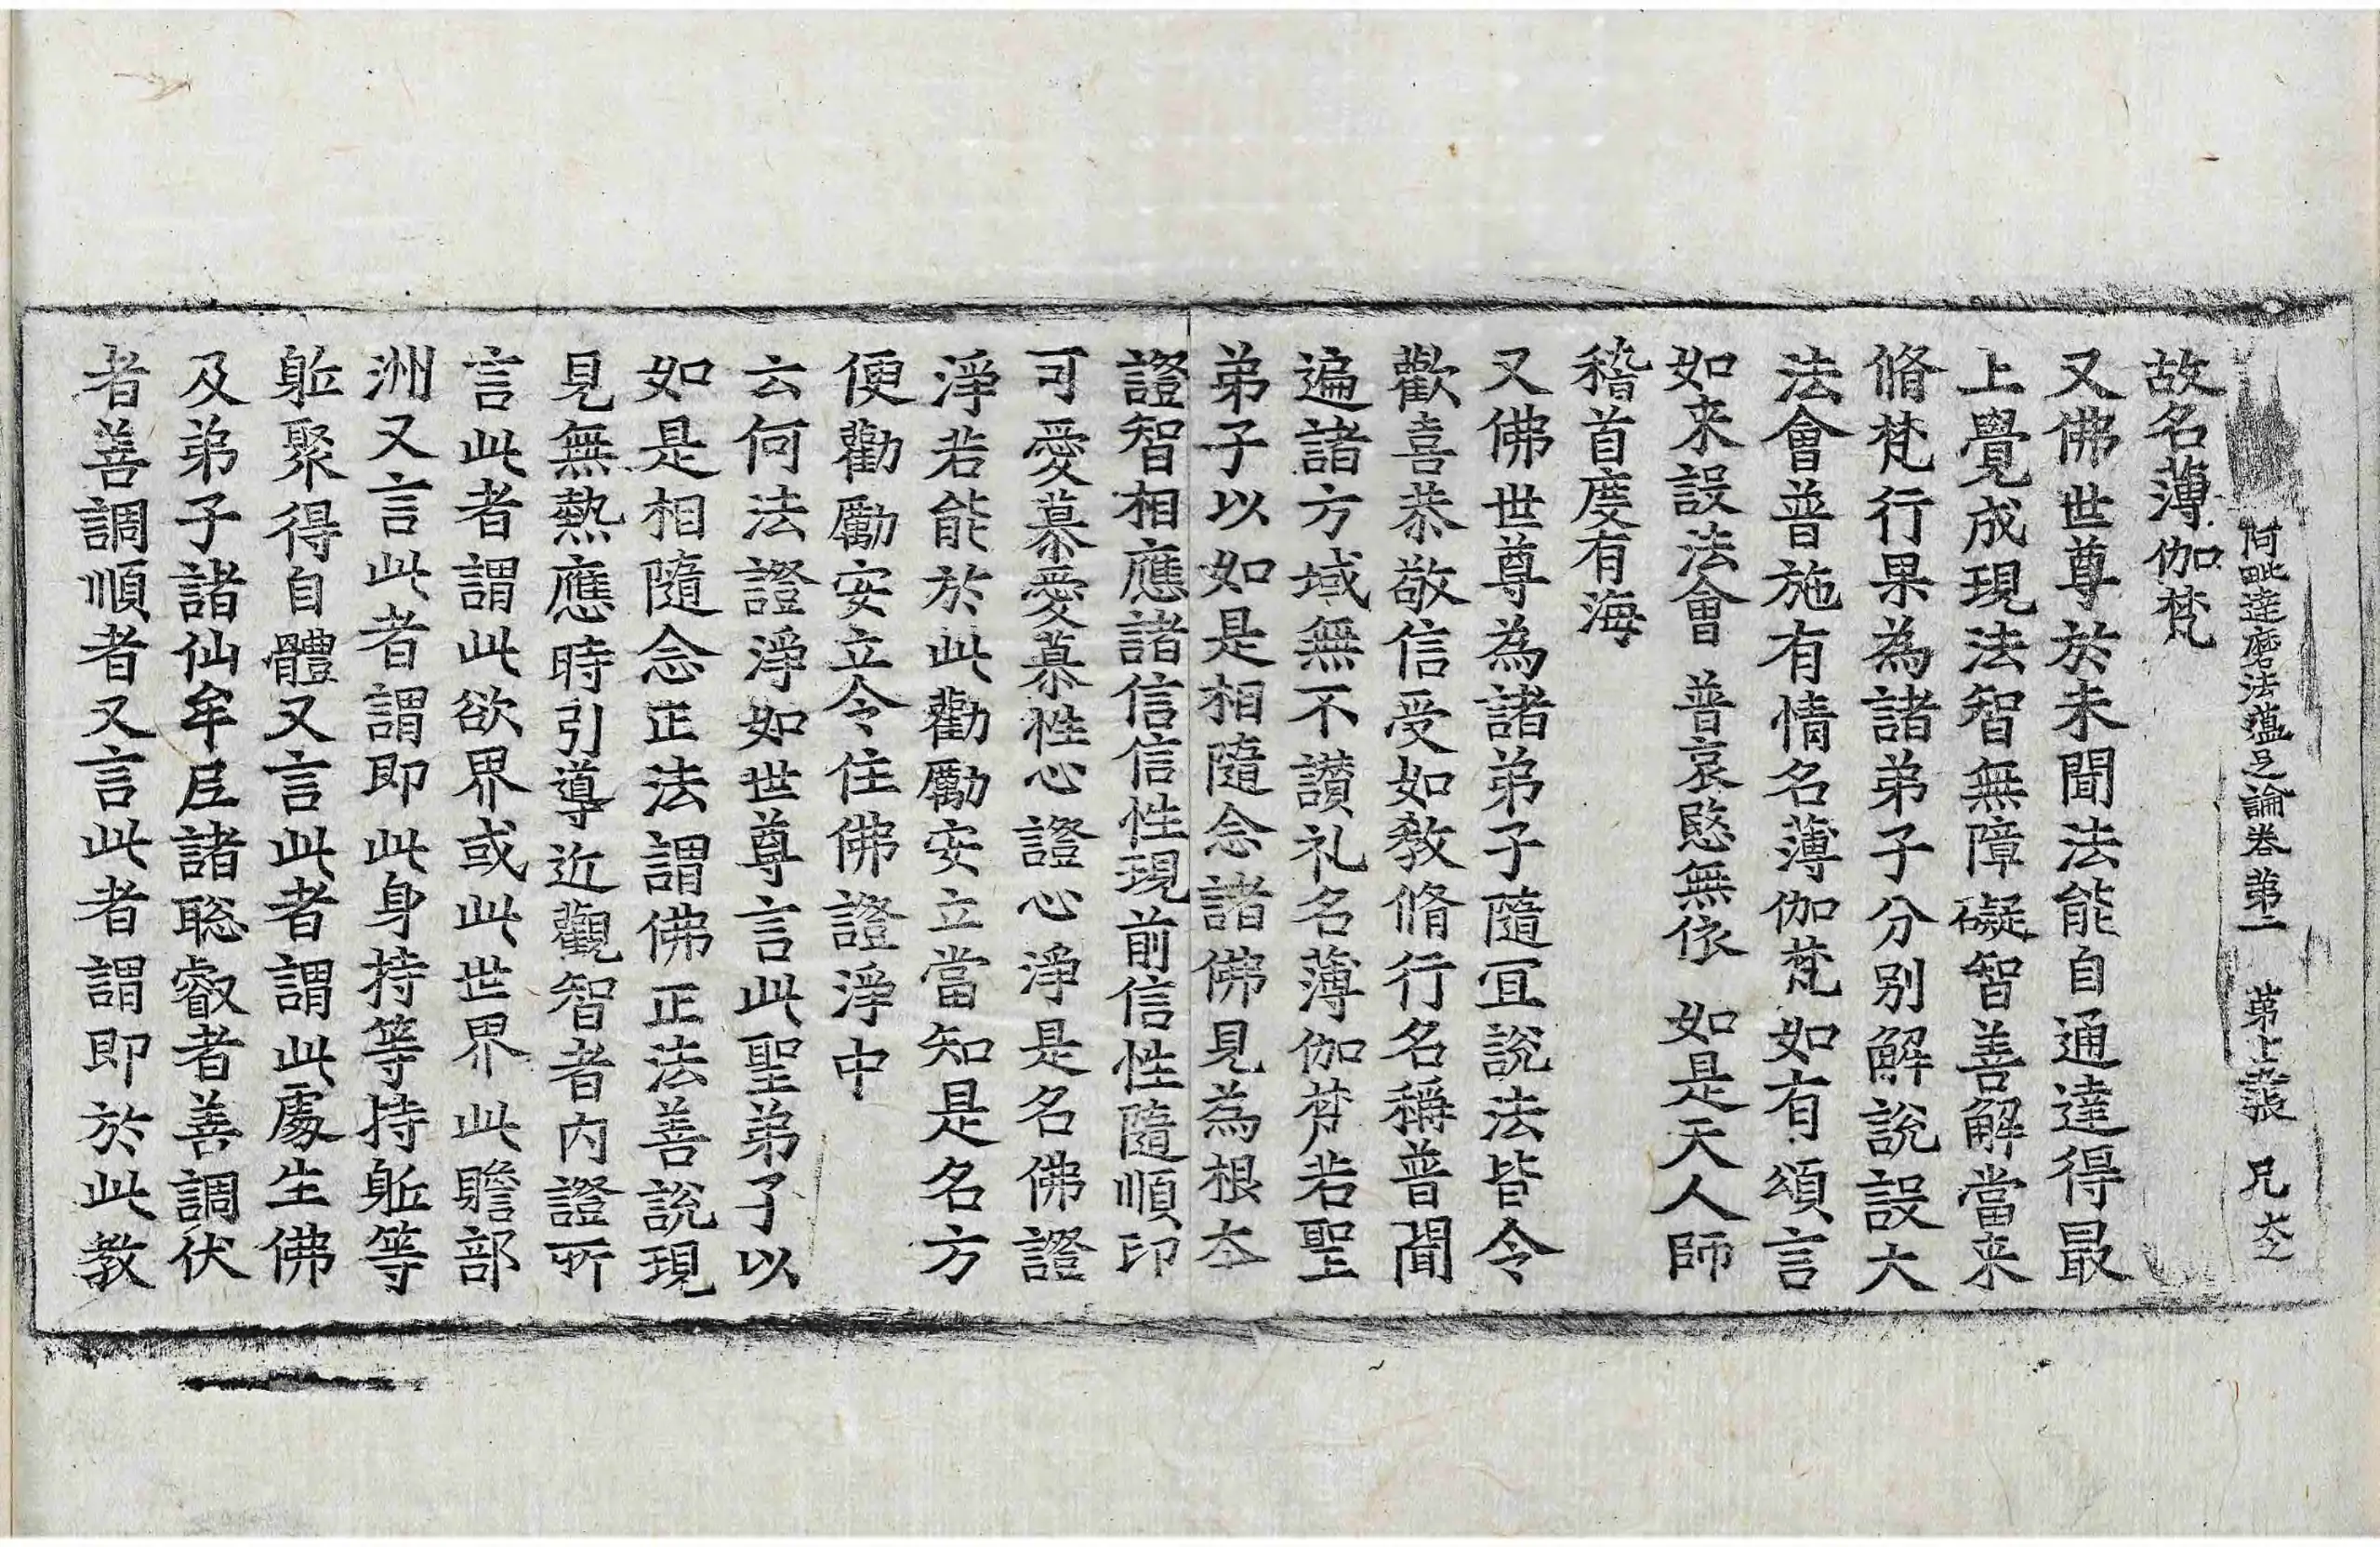 阿毗達磨法蘊足論卷第二 第十五張 兄 大
故名薄伽梵
又佛世尊於未聞法能自通達得最
上覺成現法智無障礙智善解當来
脩梵行果為諸弟子分別解說設大
法會普施有情名薄伽梵如有頌言
如来設法會 普哀愍無依 如是天人師
稽首度有海
又佛世尊為諸弟子隨冝說法皆令
歡喜恭敬信受如教脩行名稱普聞
遍諸方域無不讃礼名薄伽梵若聖
弟子以如是相隨念諸佛見為根夲
證智相應諸信信性現前信性隨順印
可愛慕愛慕性心證心淨是名佛證
淨若能於此勸勵安立當知是名方
便勸勵安立令住佛證淨中
云何法證淨如世尊言此聖弟子以
如是相隨念正法謂佛正法善說現
見無熱應時引導近觀智者内證所
言此者謂此欲界或此世界此贍部
洲又言此者謂即此身持等持躰等
躰聚得自體又言此者謂此處生佛
及弟子諸仙牟尼諸聡叡者善調伏
者善調順者又言此者謂即於此教